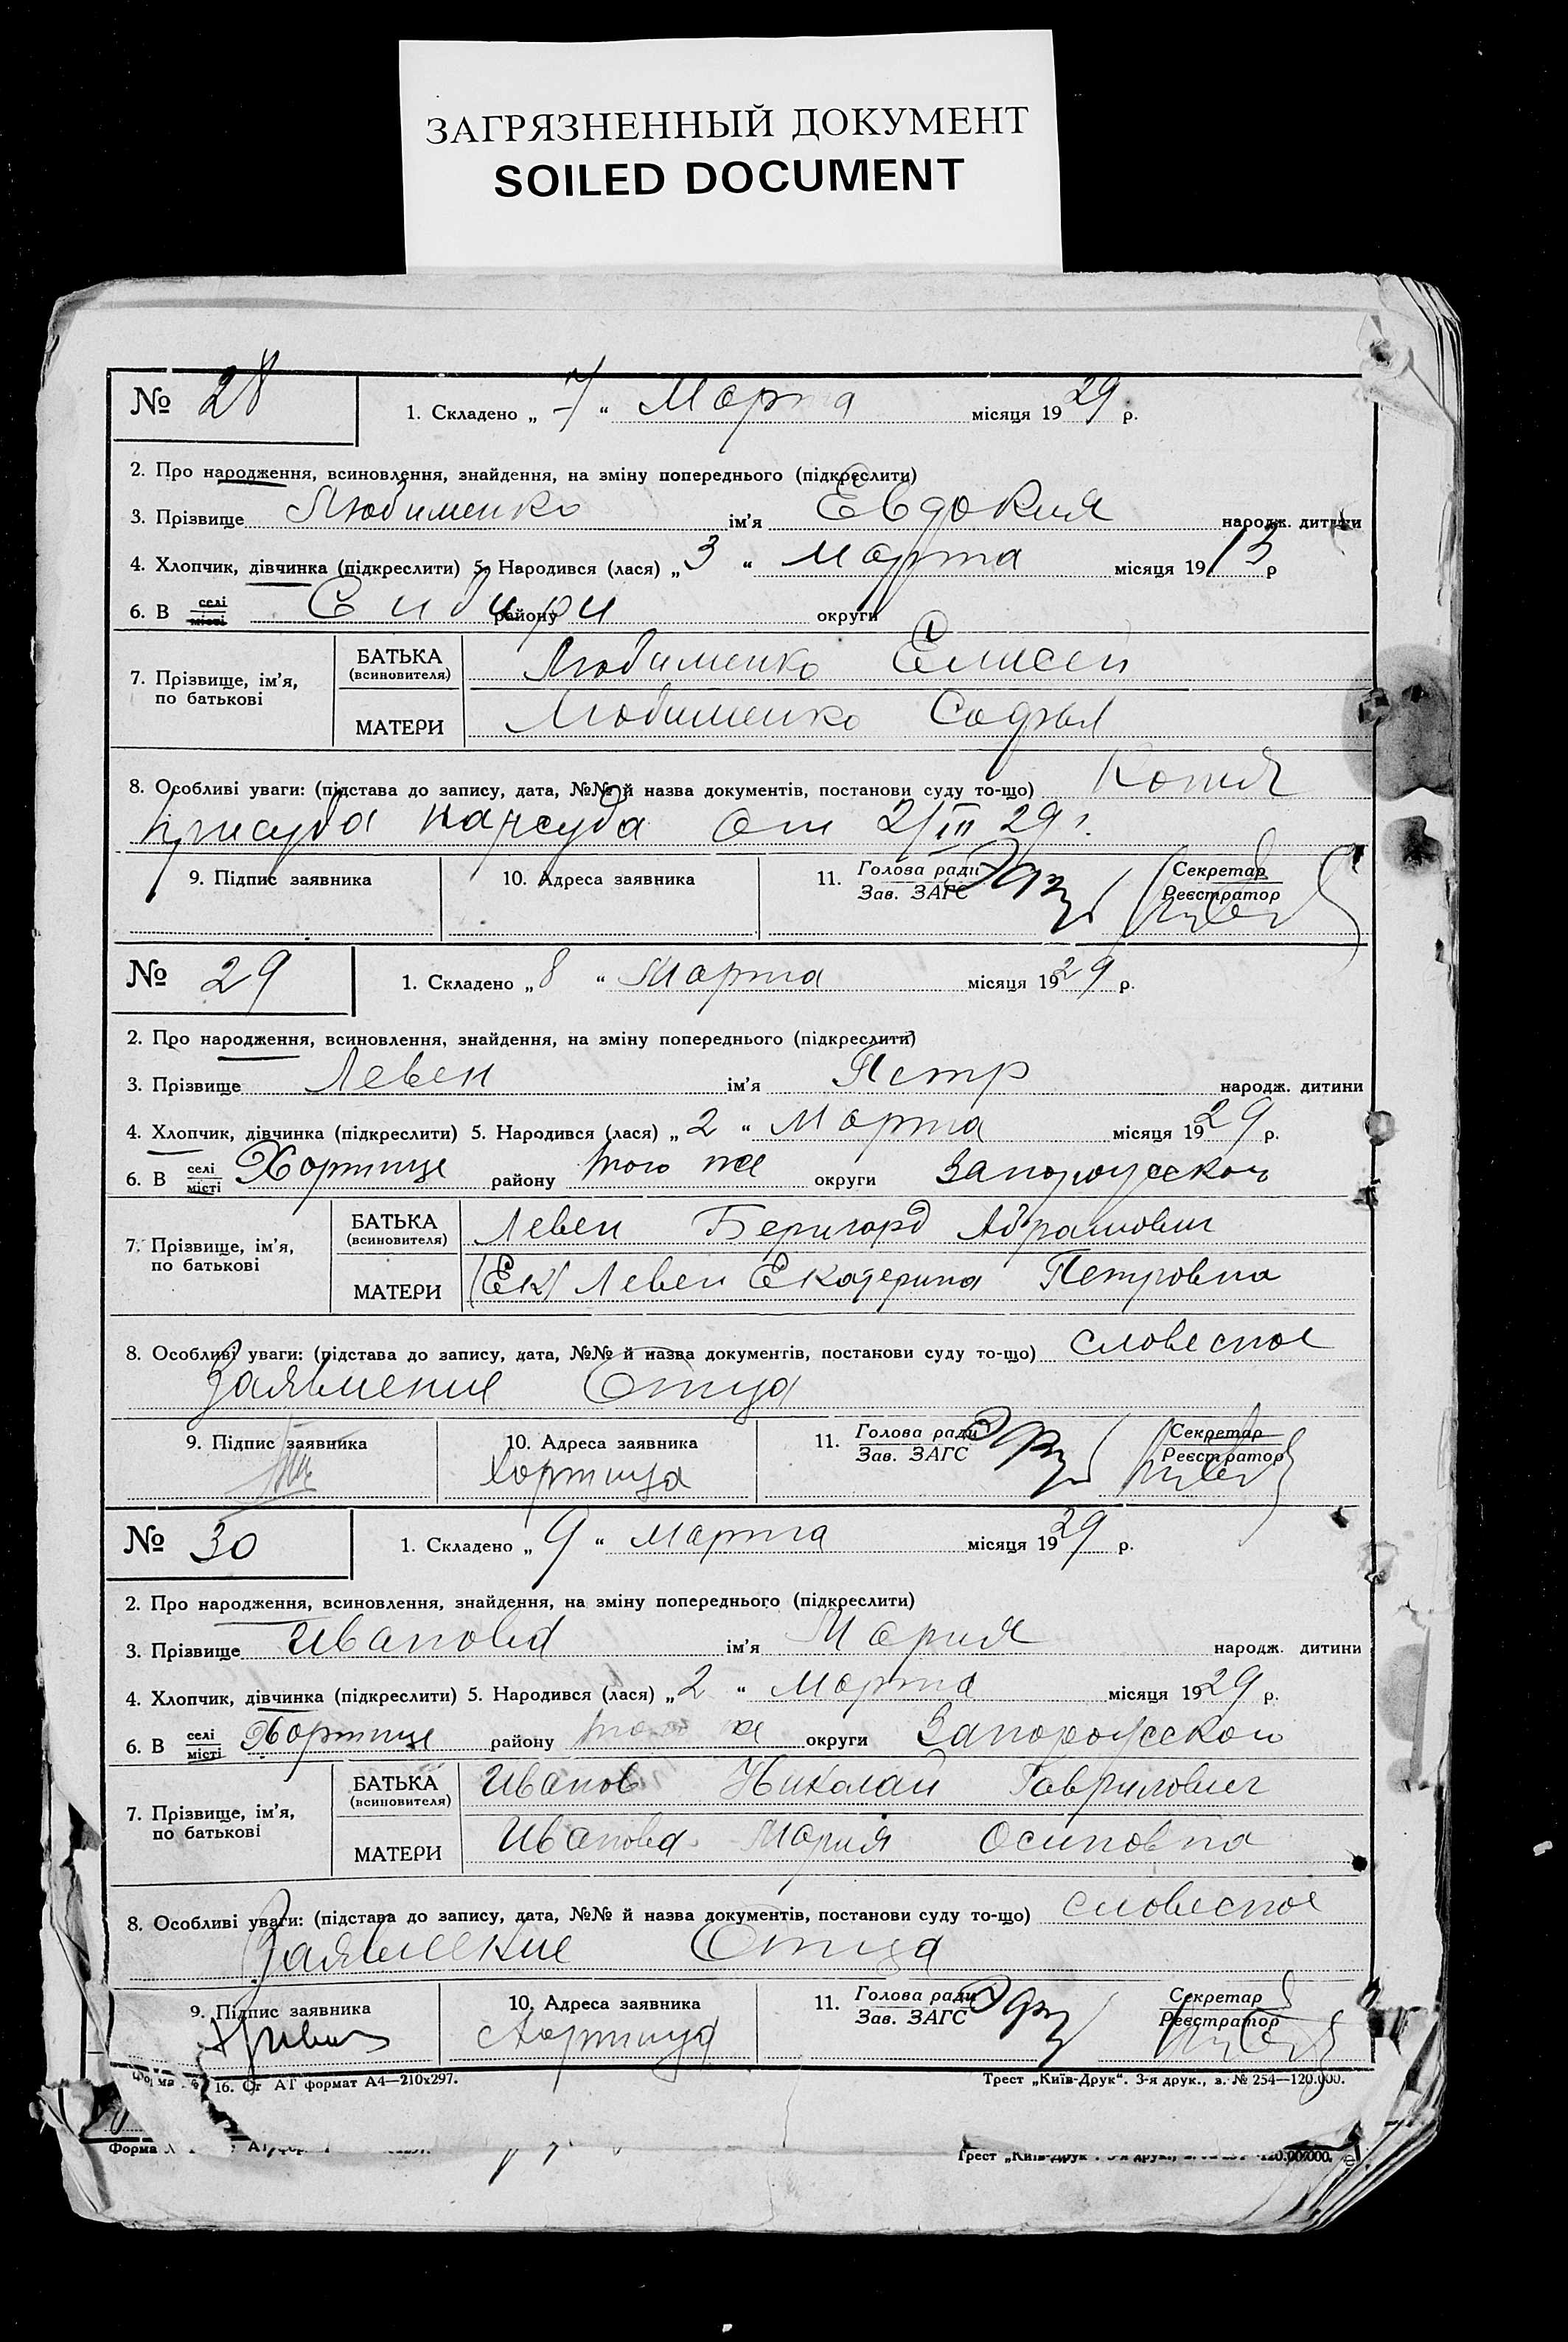 ЗАГРЯЗНЕННЫЙ ДОКУМЕНТ
SOILED DOCUMENT
№ 28 1. Складено „ 7 “ Марта місяця 1929 р.
2. Про народження, всиновлення, знайдення, на зміну попереднього (підкреслити)
3. Прізвище Любименко ім’я Евдокия народж. дитини
4. Хлопчик, дівчинка (підкреслити) 5. Народився (лася) „ 3 “ марта місяця 1913 р
6. В селі місті Сибири району округи
7. Прізвище, ім’я, по батькові БАТЬКА (всиновителя) Любименко Елисей
МАТЕРИ Любименко Софья
8. Особливі уваги: (підстава до запису, дата, №№ й назва документів, постанови суду то-що) Копия
присуда нарсуда от 2/III 29 г.
9. Підпис заявника 10. Адреса заявника 11. Голова ради Зав. ЗАГС Секретар Реєстратор
№ 29 1. Складено „ 8 “ Марта місяця 1929 р.
2. Про народження, всиновлення, знайдення, на зміну попереднього (підкреслити)
3. Прізвище Левен ім’я Петр народж. дитини
4. Хлопчик, дівчинка (підкреслити) 5. Народився (лася) „ 2 “ Марта місяця 1929 р.
6. В селі місті Хортице району того же округи Запорожской
7. Прізвище, ім’я, по батькові БАТЬКА (всиновителя) Левен Бернгард Абрамович
МАТЕРИ (Ек) Левен Екатерина Петровна
8. Особливі уваги: (підстава до запису, дата, №№ й назва документів, постанови суду то-що) словесное
Заявление Отца
9. Підпис заявника 10. Адреса заявника Хортица 11. Голова ради Зав. ЗАГС Секретар Реєстратор
№ 30 1. Складено „ 9 “ марта місяця 1929 р.
2. Про народження, всиновлення, знайдення, на зміну попереднього (підкреслити)
3. Прізвище Иванова ім’я Мария народж. дитини
4. Хлопчик, дівчинка (підкреслити) 5. Народився (лася) „ 2 “ Марта місяця 1929 р.
6. В селі місті Хортице району того же округи Запорожской
7. Прізвище, ім’я, по батькові БАТЬКА (всиновителя) Иванов Николай Гаврилович
МАТЕРИ Иванова Мария Осиповна
8. Особливі уваги: (підстава до запису, дата, №№ й назва документів, постанови суду то-що) словесное
Заявление Отца
9. Підпис заявника 10. Адреса заявника Хортица 11. Голова ради Зав. ЗАГС Секретар Реєстратор
16. Ст АТ формат А4—210x297. Трест „Київ-Друк“. 3-я друк., з. № 254—120.000.
Форма